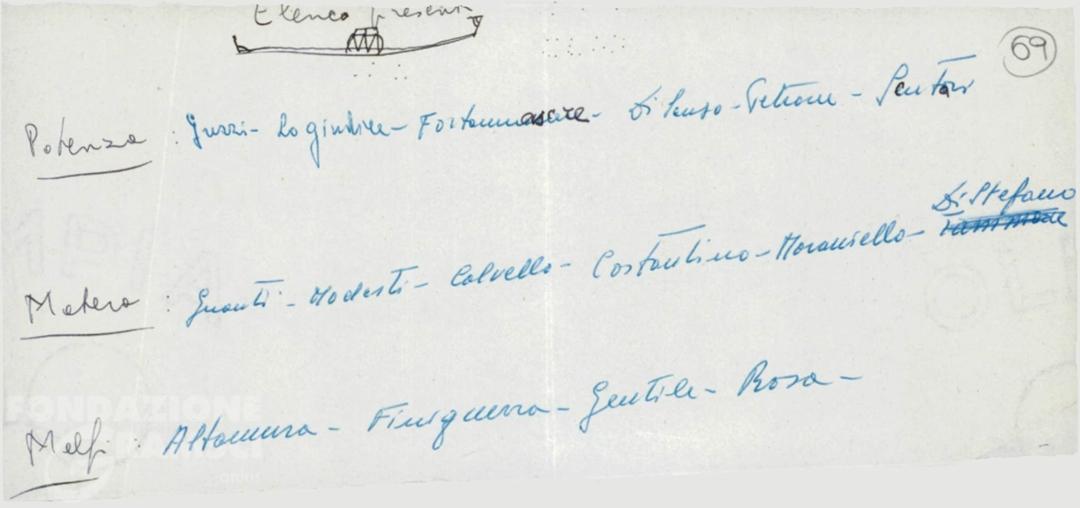 Elenco presenti
69
Potenza : Guzzi - Logiudice - Fortunnasare - Di Sanso - Petrone - Santasi
Di Stefano
Matera : Guanti - Modesti - Calvello - Costantino - Moraniello -
Melfi : Altamura - Finiguerra - Gentile - Rosa -
FONDAZIONE